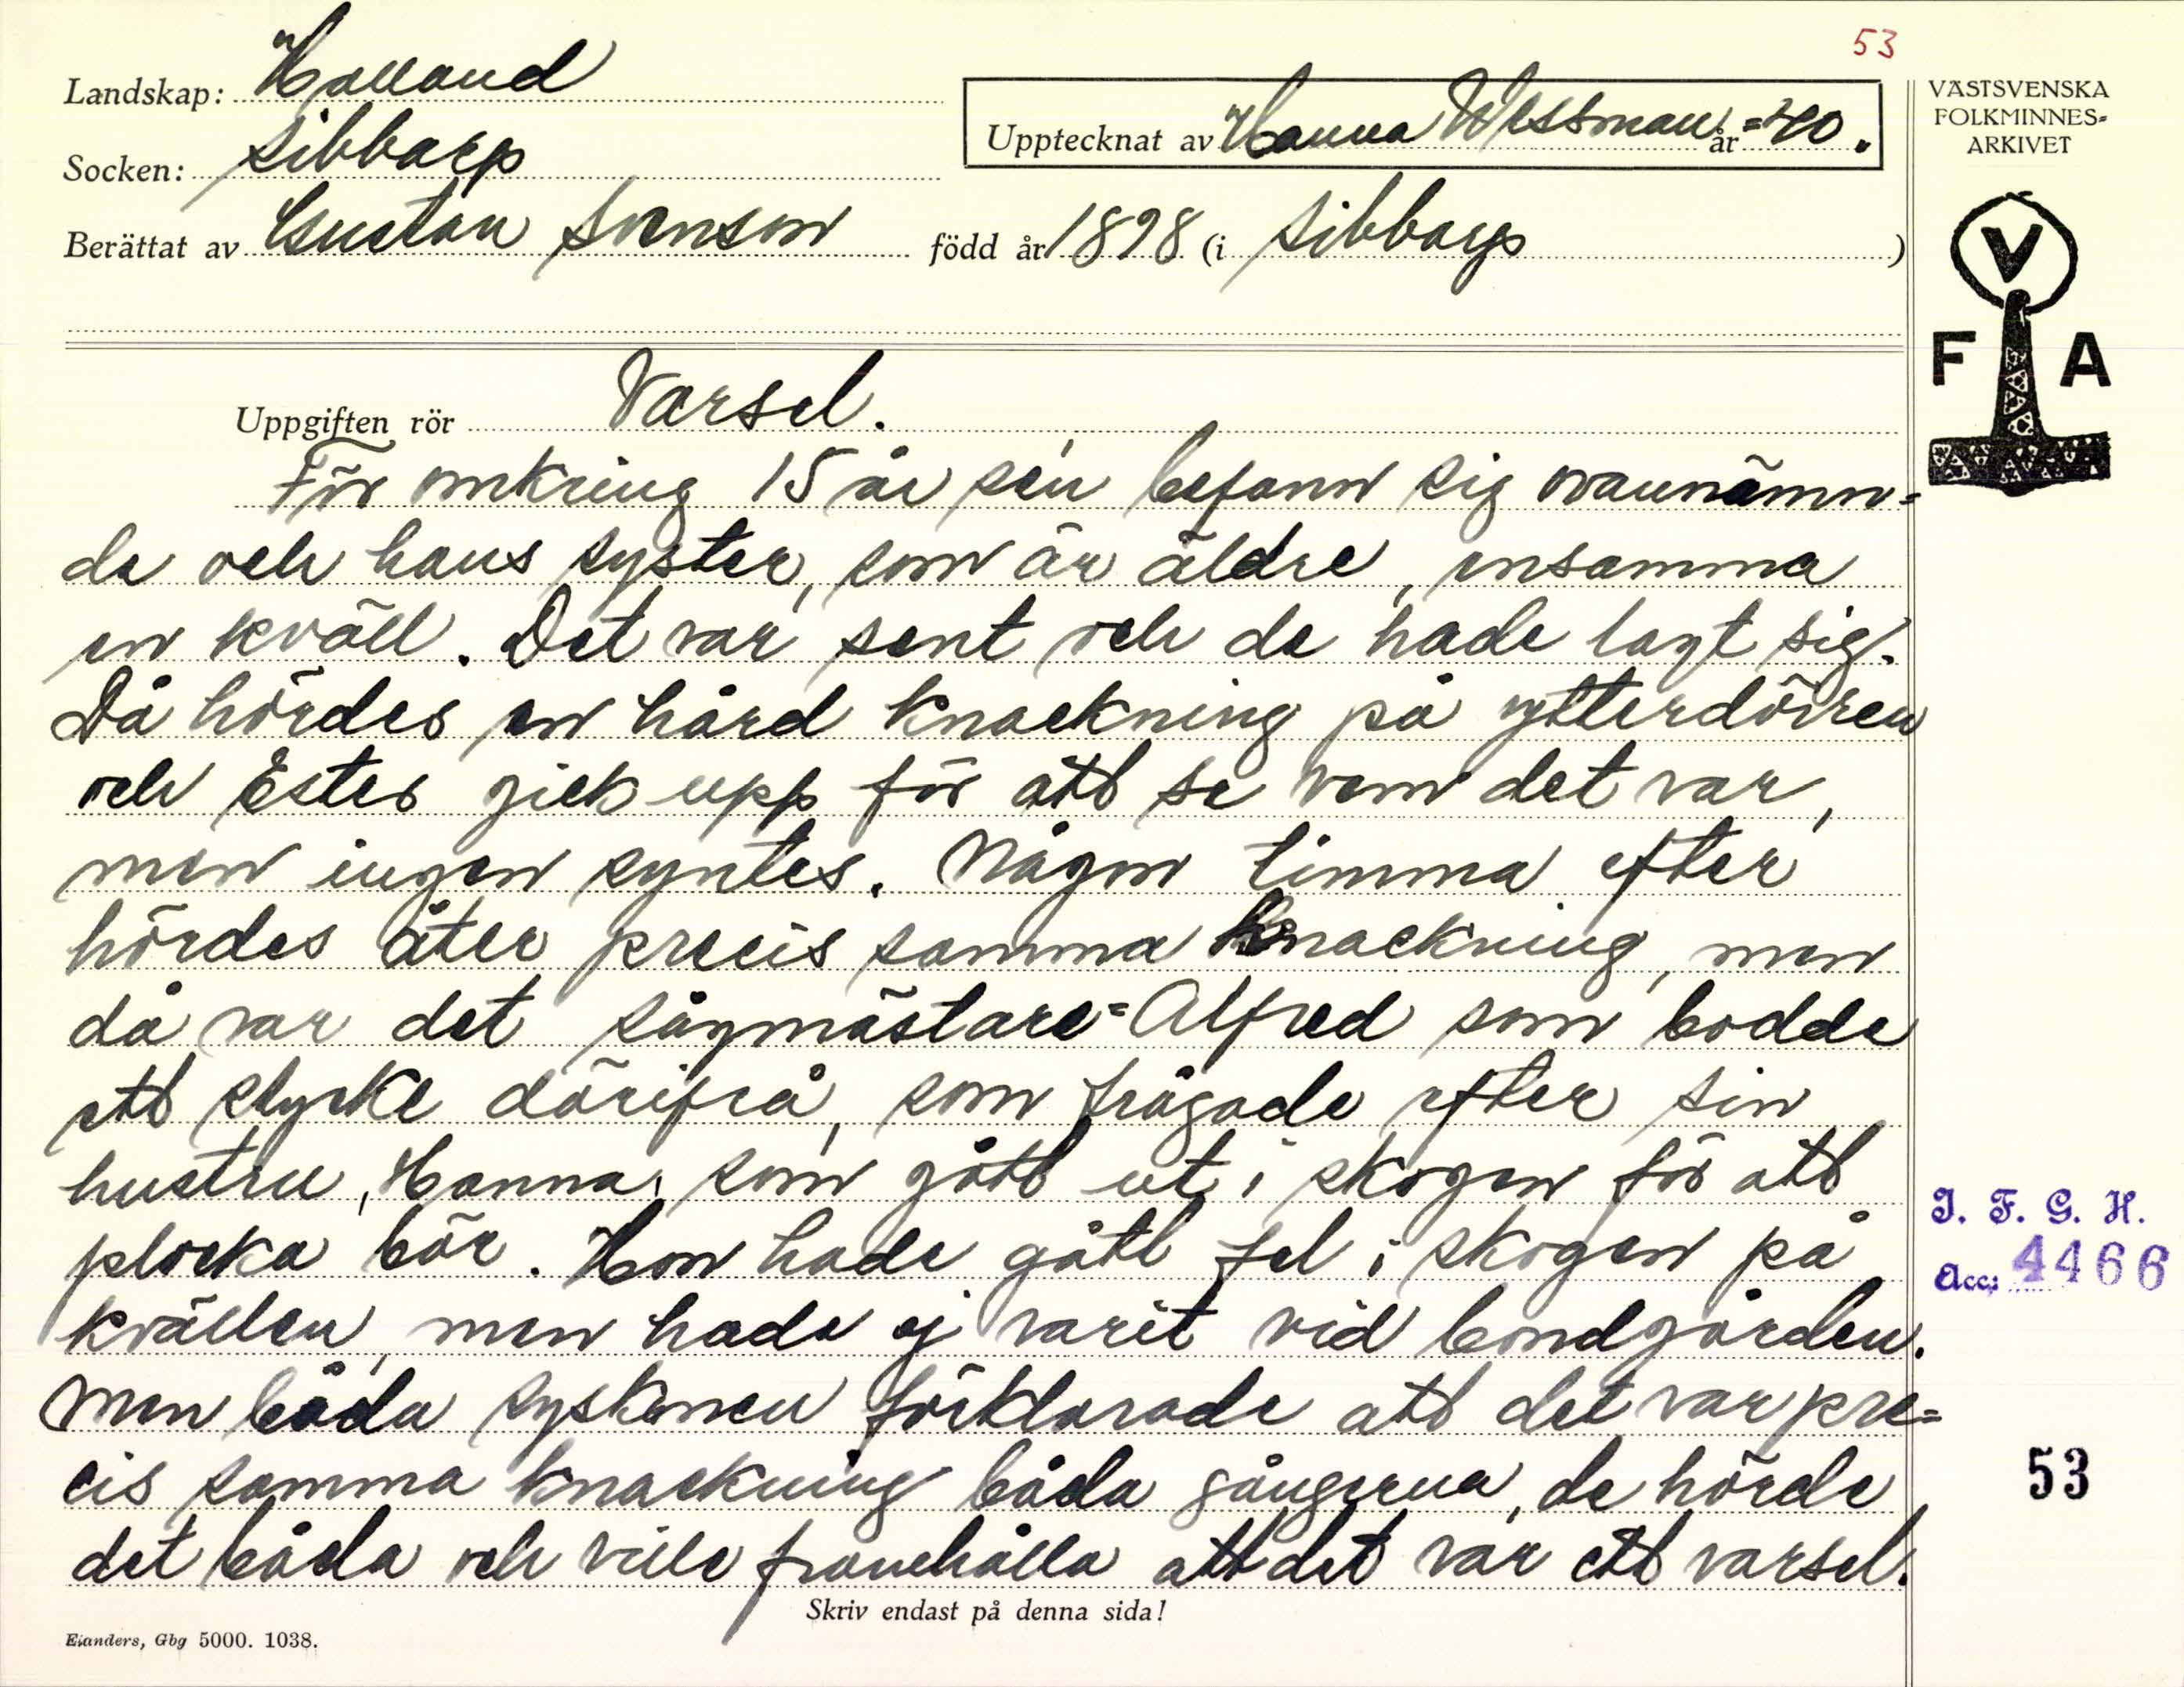 53
Landskap: Halland
Socken: Sibbarp
Upptecknat av Hanna Wessman år =40.
Berättat av Gustav Svenson född år 1898 (i Sibbarp)
VÄSTSVENSKA
FOLKMINNES=
ARKIVET
V
F A
Uppgiften rör Varsel.
För omkring 15 år sen befann sig ovannämn=
de och hans syster, som är äldre, ensamma
en kväll. Det var sent och de hade lagt sig.
Då hördes en hård knackning på ytterdörren
och Ester gick upp för att se vem det var,
men ingen syntes. Någon timma efter
hördes åter precis samma knackning, men
då var det sågmästare=Alfred som bodde
ett stycke därifrå, som frågade efter sin
hustru, Hanna, som gått ut i skogen för att
plocka bär. Hon hade gått fel i skogen på
kvällen, men hade ej varit vid bondgården.
Men båda syskonen förklarade att det var pre=
cis samma knackning båda gångerna, de hörde
det båda och ville framhålla att det var ett varsel.
I. F. G. H.
Acc: 4466
53
Skriv endast på denna sida!
Elanders, Gbg 5000. 1038.